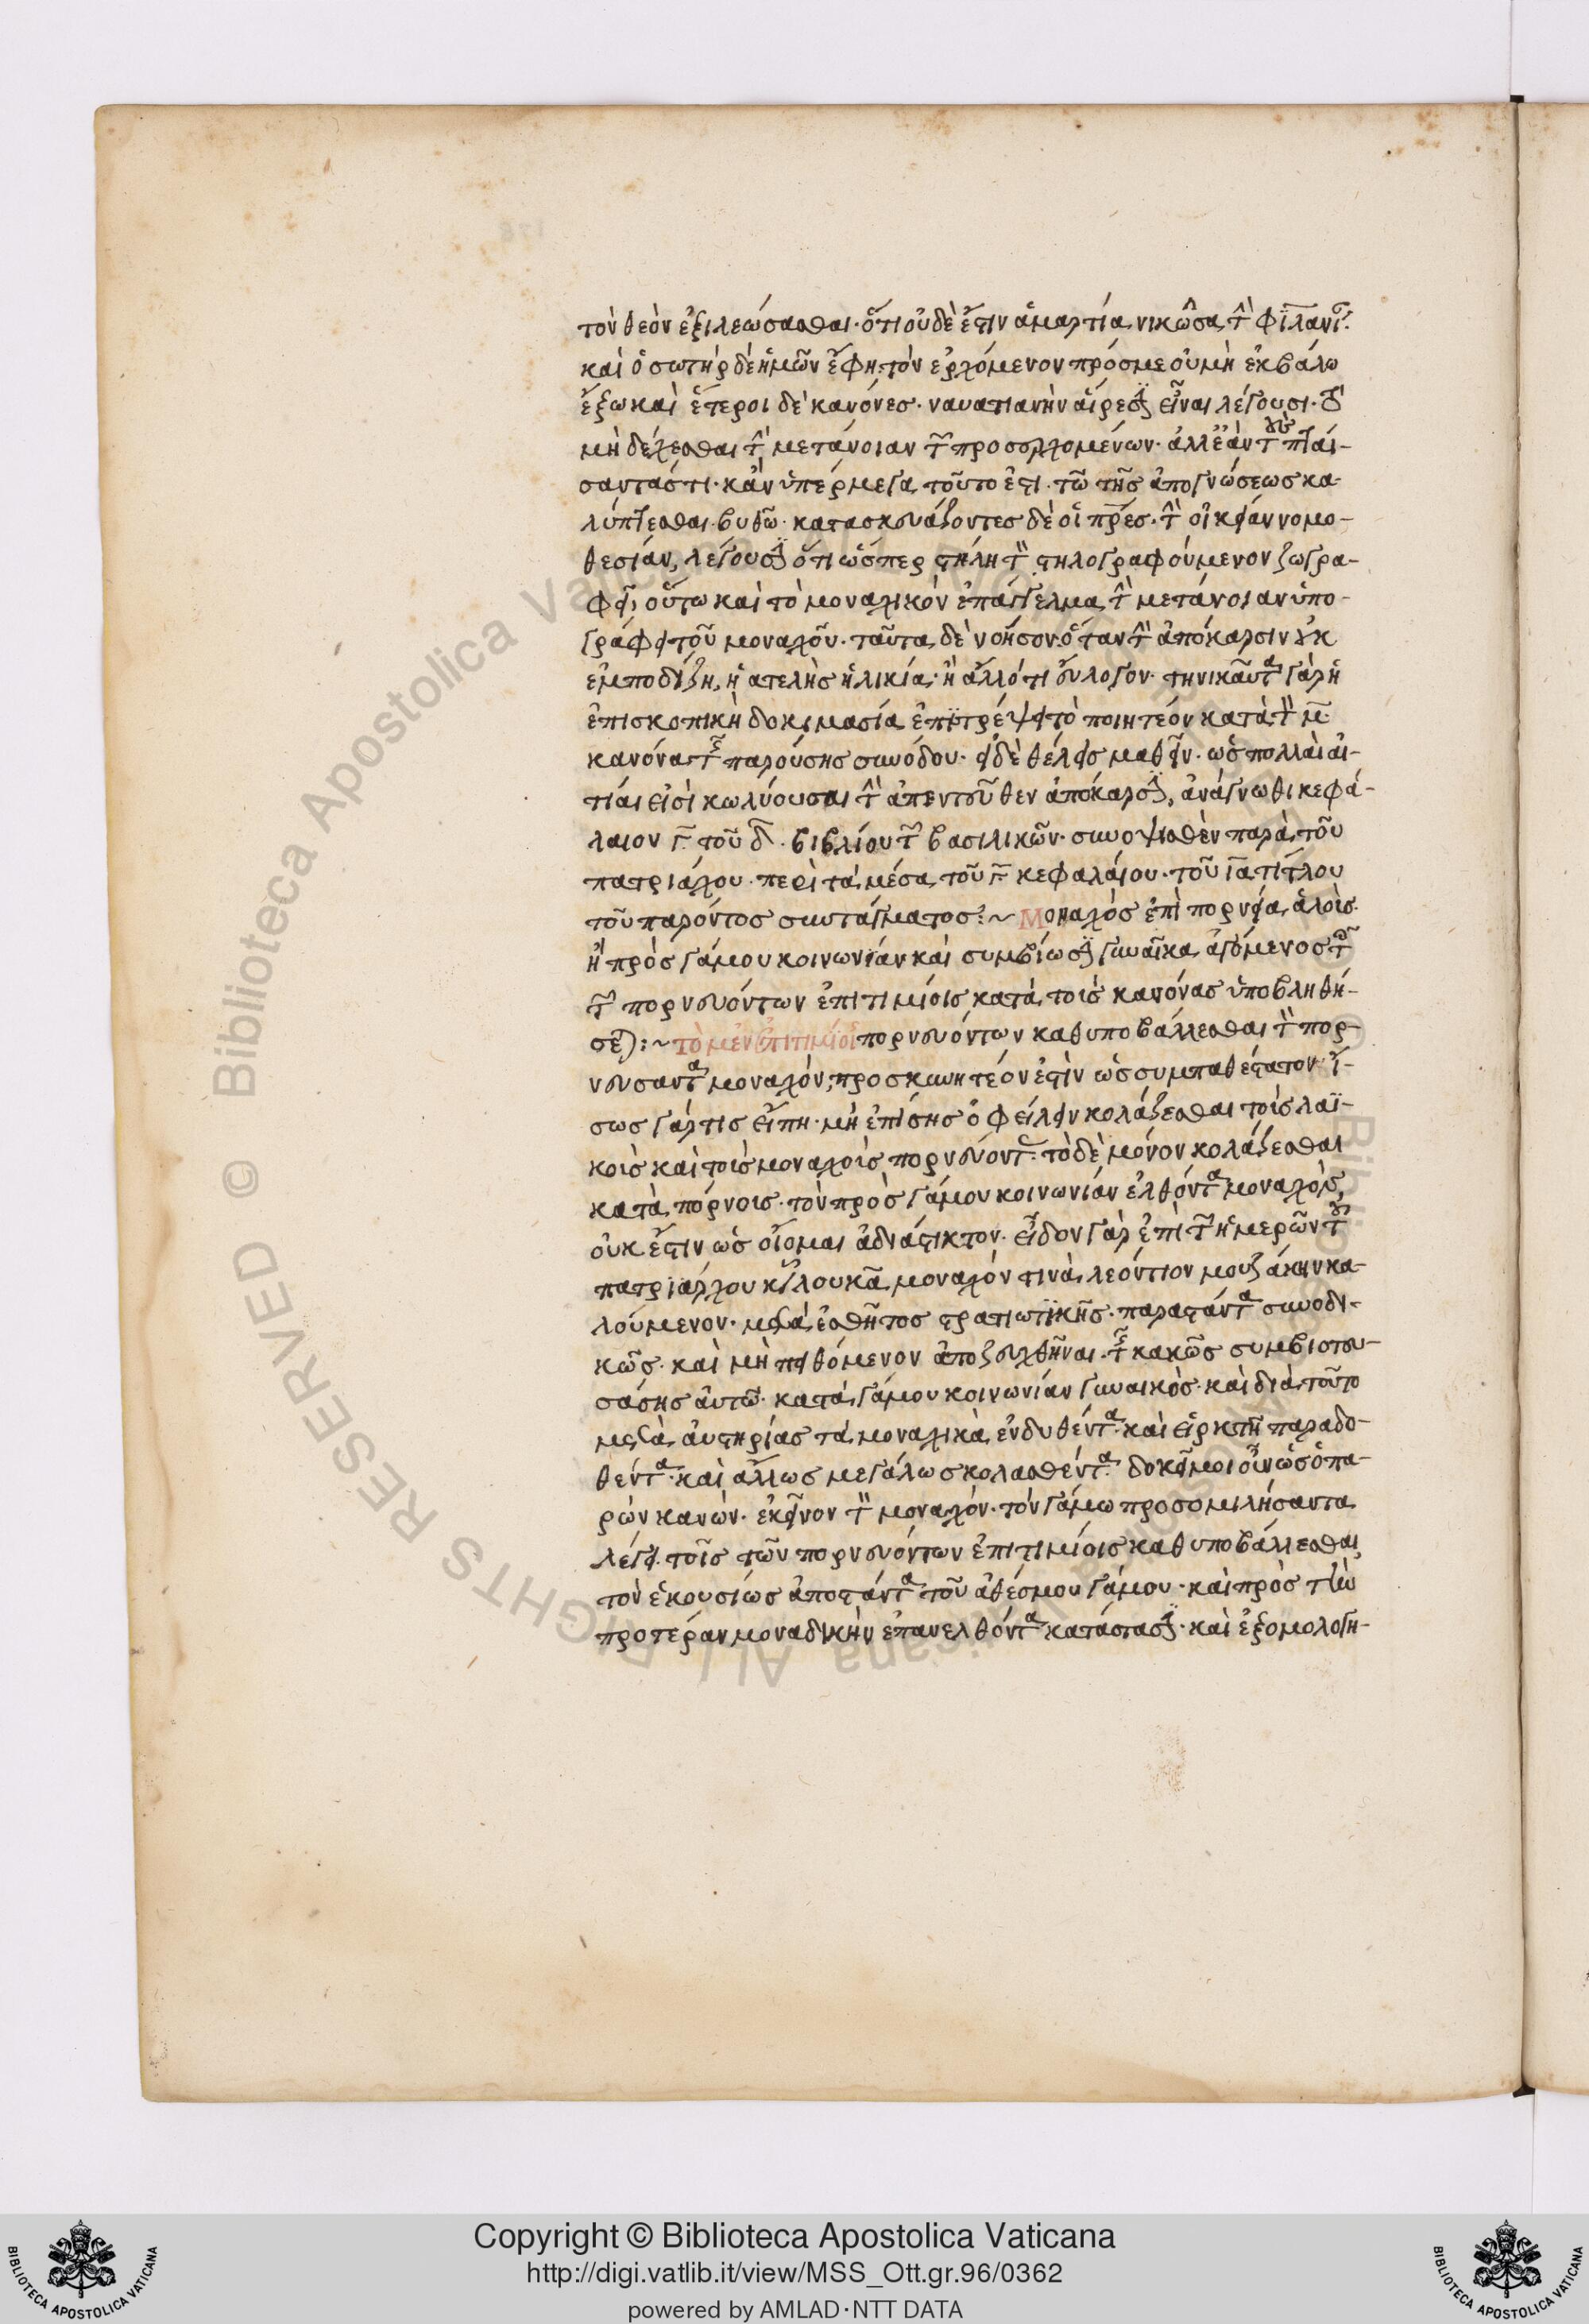 τὸν θεὸν ἐξιλεώσασθαι· ὅτι οὐδὲ ἔστιν ἁμαρτία νικῶσα τὴν φιλανίαν·
καὶ ὁ σωτὴρ δὲ ἡμῶν ἔφη· τὸν ἐρχόμενον πρός με οὐ μὴ ἐκβάλω
ἔξω καὶ ἕτεροι δὲ κανόνες· ναυατιανὴν αἵρεσιν εἶναι λέγουσι· τὸ
μὴ δέχεσθαι τὴν μετάνοιαν τῶν προσερχομένων· ἀλλ' ἐὰν τοὺς πταί-
σαντάς τι· κἂν ὑπέρμεγα τοῦτο ἐστι· τῶ τῆς ἀπογνώσεως κα-
λύπτεσθαι βυθῶ· κατασκευάζοντες δὲ οἱ πρες· τὴν οἰκείαν νομο-
θεσίαν, λέγουσιν ὅτι ὥσπερ στήλη τὸν στηλογραφούμενον ζωγρα-
φεῖ, οὕτω καὶ τὸ μοναχικὸν ἐπάγγελμα τὴν μετάνοιαν ὑπο-
γράφει τοῦ μοναχοῦ· ταῦτα δὲ νόησον· ὅταν τὴν ἀπόκαρσιν οὐκ
ἐμποδίζη, ἡ ἀτελὴς ἡλικία· ἢ ἄλλό τι εὔλογον· τηνικαῦτα γὰρ ἡ
ἐπισκοπικὴ δοκιμασία ἐπιτρέψει τὸ ποιητέον κατὰ τὸν μ
κανόνα τῆς παρούσης συνόδου· εἰ δὲ θέλεις μαθεῖν· ὡς πολλαὶ αἰ-
τίαι εἰσὶ κωλύουσαι τὴν ἀπεντεῦθεν ἀπόκαρσιν, ἀνάγνωθι κεφά-
λαιον γ τοῦ δ βιβλίου τῶν βασιλικῶν· συνοψισθὲν παρὰ τοῦ
πατριάρχου· περὶ τὰ μέσα τοῦ γ κεφαλαίου· τοῦ ια τίτλου
τοῦ παρόντος συντάγματος:~ Μοναχὸς ἐπὶ πορνεία ἁλοὺς·
ἢ πρὸς γάμου κοινωνίαν καὶ συμβίωσιν γυναῖκα ἀγόμενος τοῖς
τῶν πορνευόντων ἐπιτιμίοις κατὰ τοὺς κανόνας ὑποβληθή-
σεται:~ τὸ μὲν ἐπιτιμίοις πορνευόντων καθυποβάλλεσθαι τὸν πορ-
νεύσαντα μοναχὸν, προσκυνητέον ἐστὶν ὡς συμπαθέστατον· ἴ-
σως γάρ τις εἴπη· μὴ ἐπίσης ὀφείλειν κολάζεσθαι τοὺς λαϊ-
κοὺς καὶ τοὺς μοναχοὺς πορνεύοντας· τὸ δὲ μόνον κολάζεσθαι
κατὰ πόρνους· τὸν πρὸς γάμου κοινωνίαν ἐλθόντα μοναχὸν,
οὐκ ἔστιν ὡς οἶομαι ἀδιάστικτον· εἶδον γὰρ ἐπὶ τῶν ἡμερῶν τοῦ
πατριάρχου κῦρ λουκᾶ μοναχόν τινὰ λεόντιον μουζάκην κα-
λούμενον· μετὰ ἐσθῆτος στρατιωτικῆς· παραστάντα συνοδι-
κῶς· καὶ μὴ πειθόμενον ἀποζευχθῆναι· τῆς κακῶς συμβιοτευ-
σάσης αὐτῶ· κατὰ γάμου κοινωνίαν γυναικὸς· καὶ διὰ τοῦτο
μετὰ αὐστηρίας τὰ μοναχικὰ ἐνδυθέντα· καὶ εἱρκτῆ παραδο-
θέντα· καὶ ἄλλως μεγάλως κολασθέντα· δοκεῖ μοι οὖν ὡς ὁ πα-
ρὼν κανὼν· ἐκεῖνον τὸν μοναχὸν· τὸν γάμω προσομιλήσαντα
λέγει· τοῖς τῶν πορνευόντων ἐπιτιμίοις καθυποβάλλεσθαι,
τὸν ἑκουσίως ἀποστάντα τοῦ ἀθέσμου γάμου· καὶ πρὸς τὴν
προτέραν μοναδικὴν ἐπανελθόντα κατάστασιν· καὶ ἐξομολογη-
Copyright © Biblioteca Apostolica Vaticana
http://digi.vatlib.it/view/MSS_Ott.gr.96/0362
powered by AMLAD·NTT DATA
BIBLIOTECA APOSTOLICA VATICANA
BIBLIOTECA APOSTOLICA VATICANA